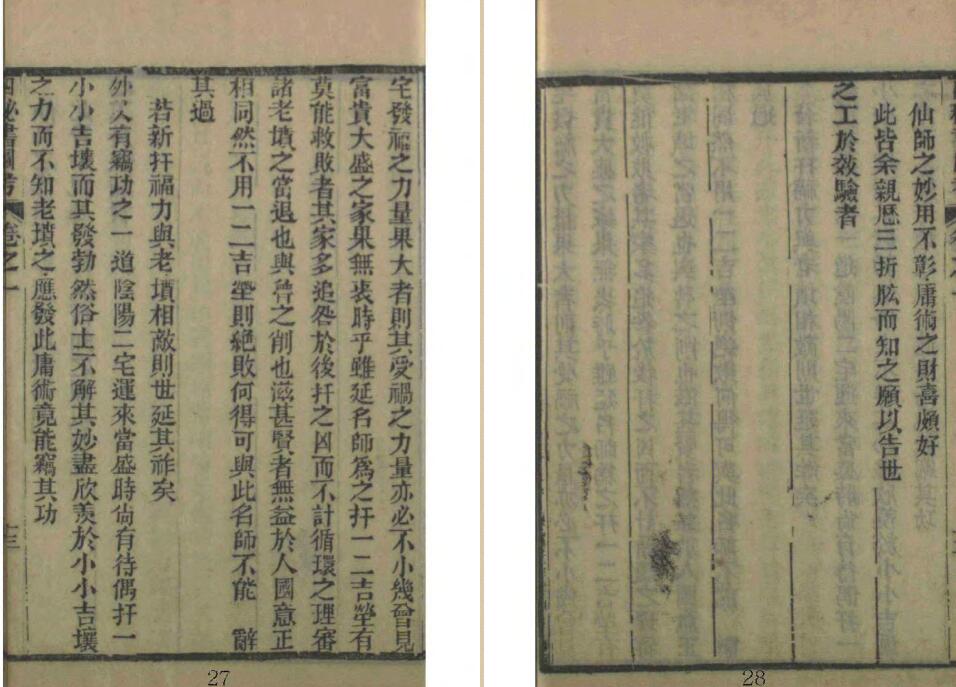 宅發福之力量果大者則其受禍之力量亦必不小幾曾見
富貴大盛之家果無衰時乎雖延名師爲之扞一二吉塋有
莫能救敗者其家多追咎於後扞之凶而不計循環之理審
諸老墳之當退也與魯之削也滋甚賢者無益於人國意正
相同然不用一二吉塋則絕敗何得可與此名師不能 辭
其過
若新扞福力與老墳相敵則世延其祚矣
外又有竊功之一道陰陽二宅運來當盛時尙有待偶扞一
小小吉壤而其發勃然俗士不解其妙盡欣羨於小小吉壤
之力而不知老墳之應發此庸術竟能竊其功
秘書圖考 卷之一 十三
27
仙師之妙用不彰庸術之財喜頗好
此皆余親歷三折肱而知之願以告世
之工於效驗者
28